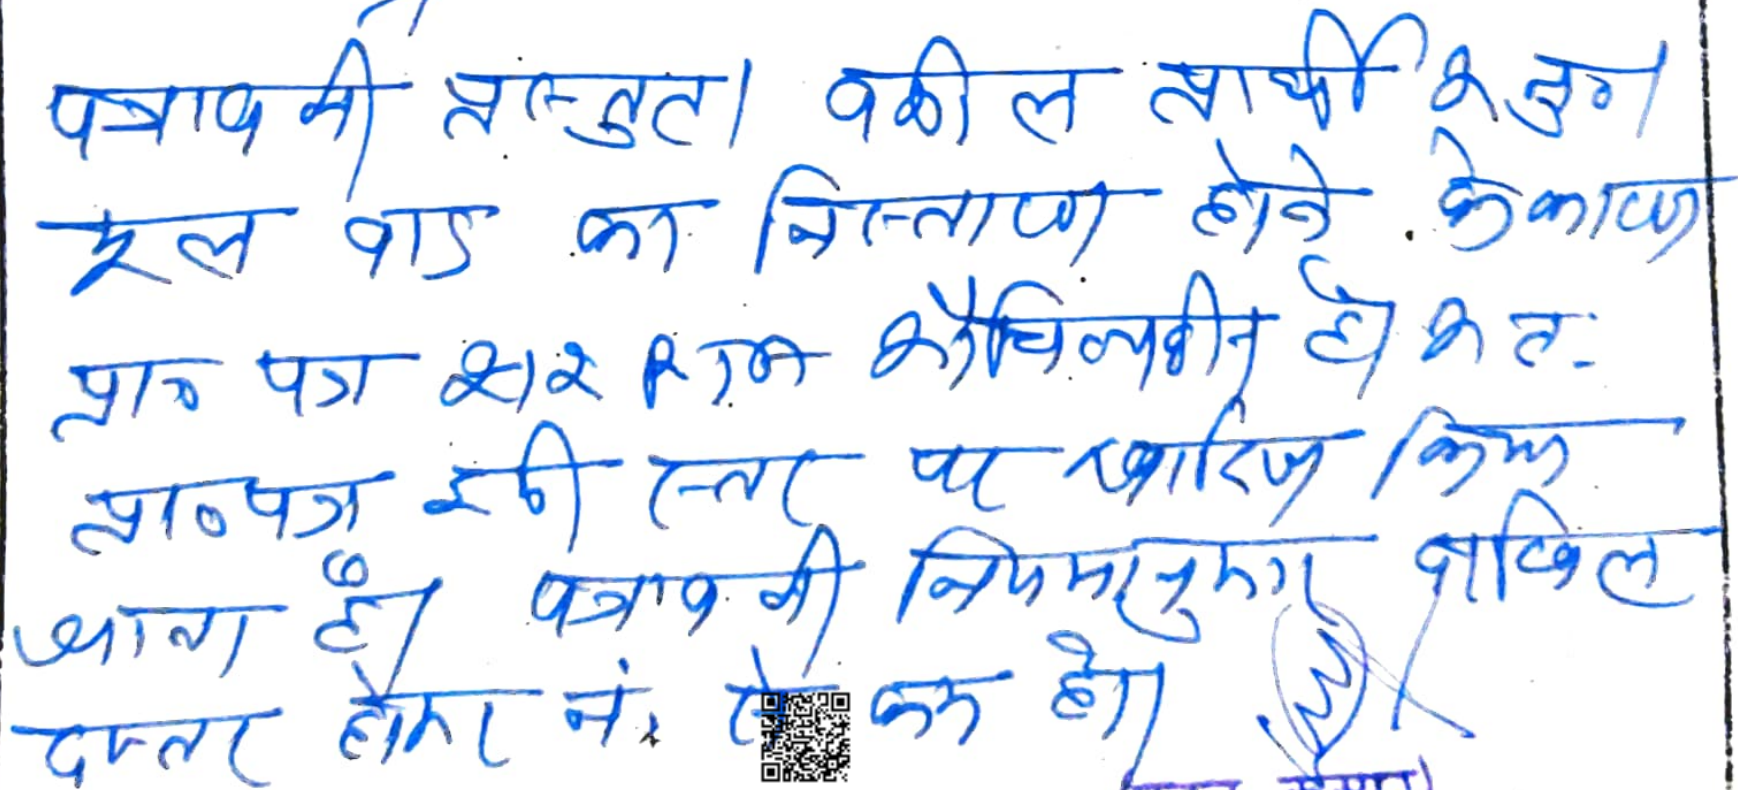 पत्रावली प्रस्तुत। वकील प्रार्थी अनु०।
मूल वाद का निस्तारण होने के कारण
प्रा० पत्र 212 RTA औचित्यहीन है। अतः
प्रा० पत्र इसी स्तर पर खारिज किया
जाता है। पत्रावली नियमानुसार दाखिल
दफ्तर होकर नं. से कम हो।